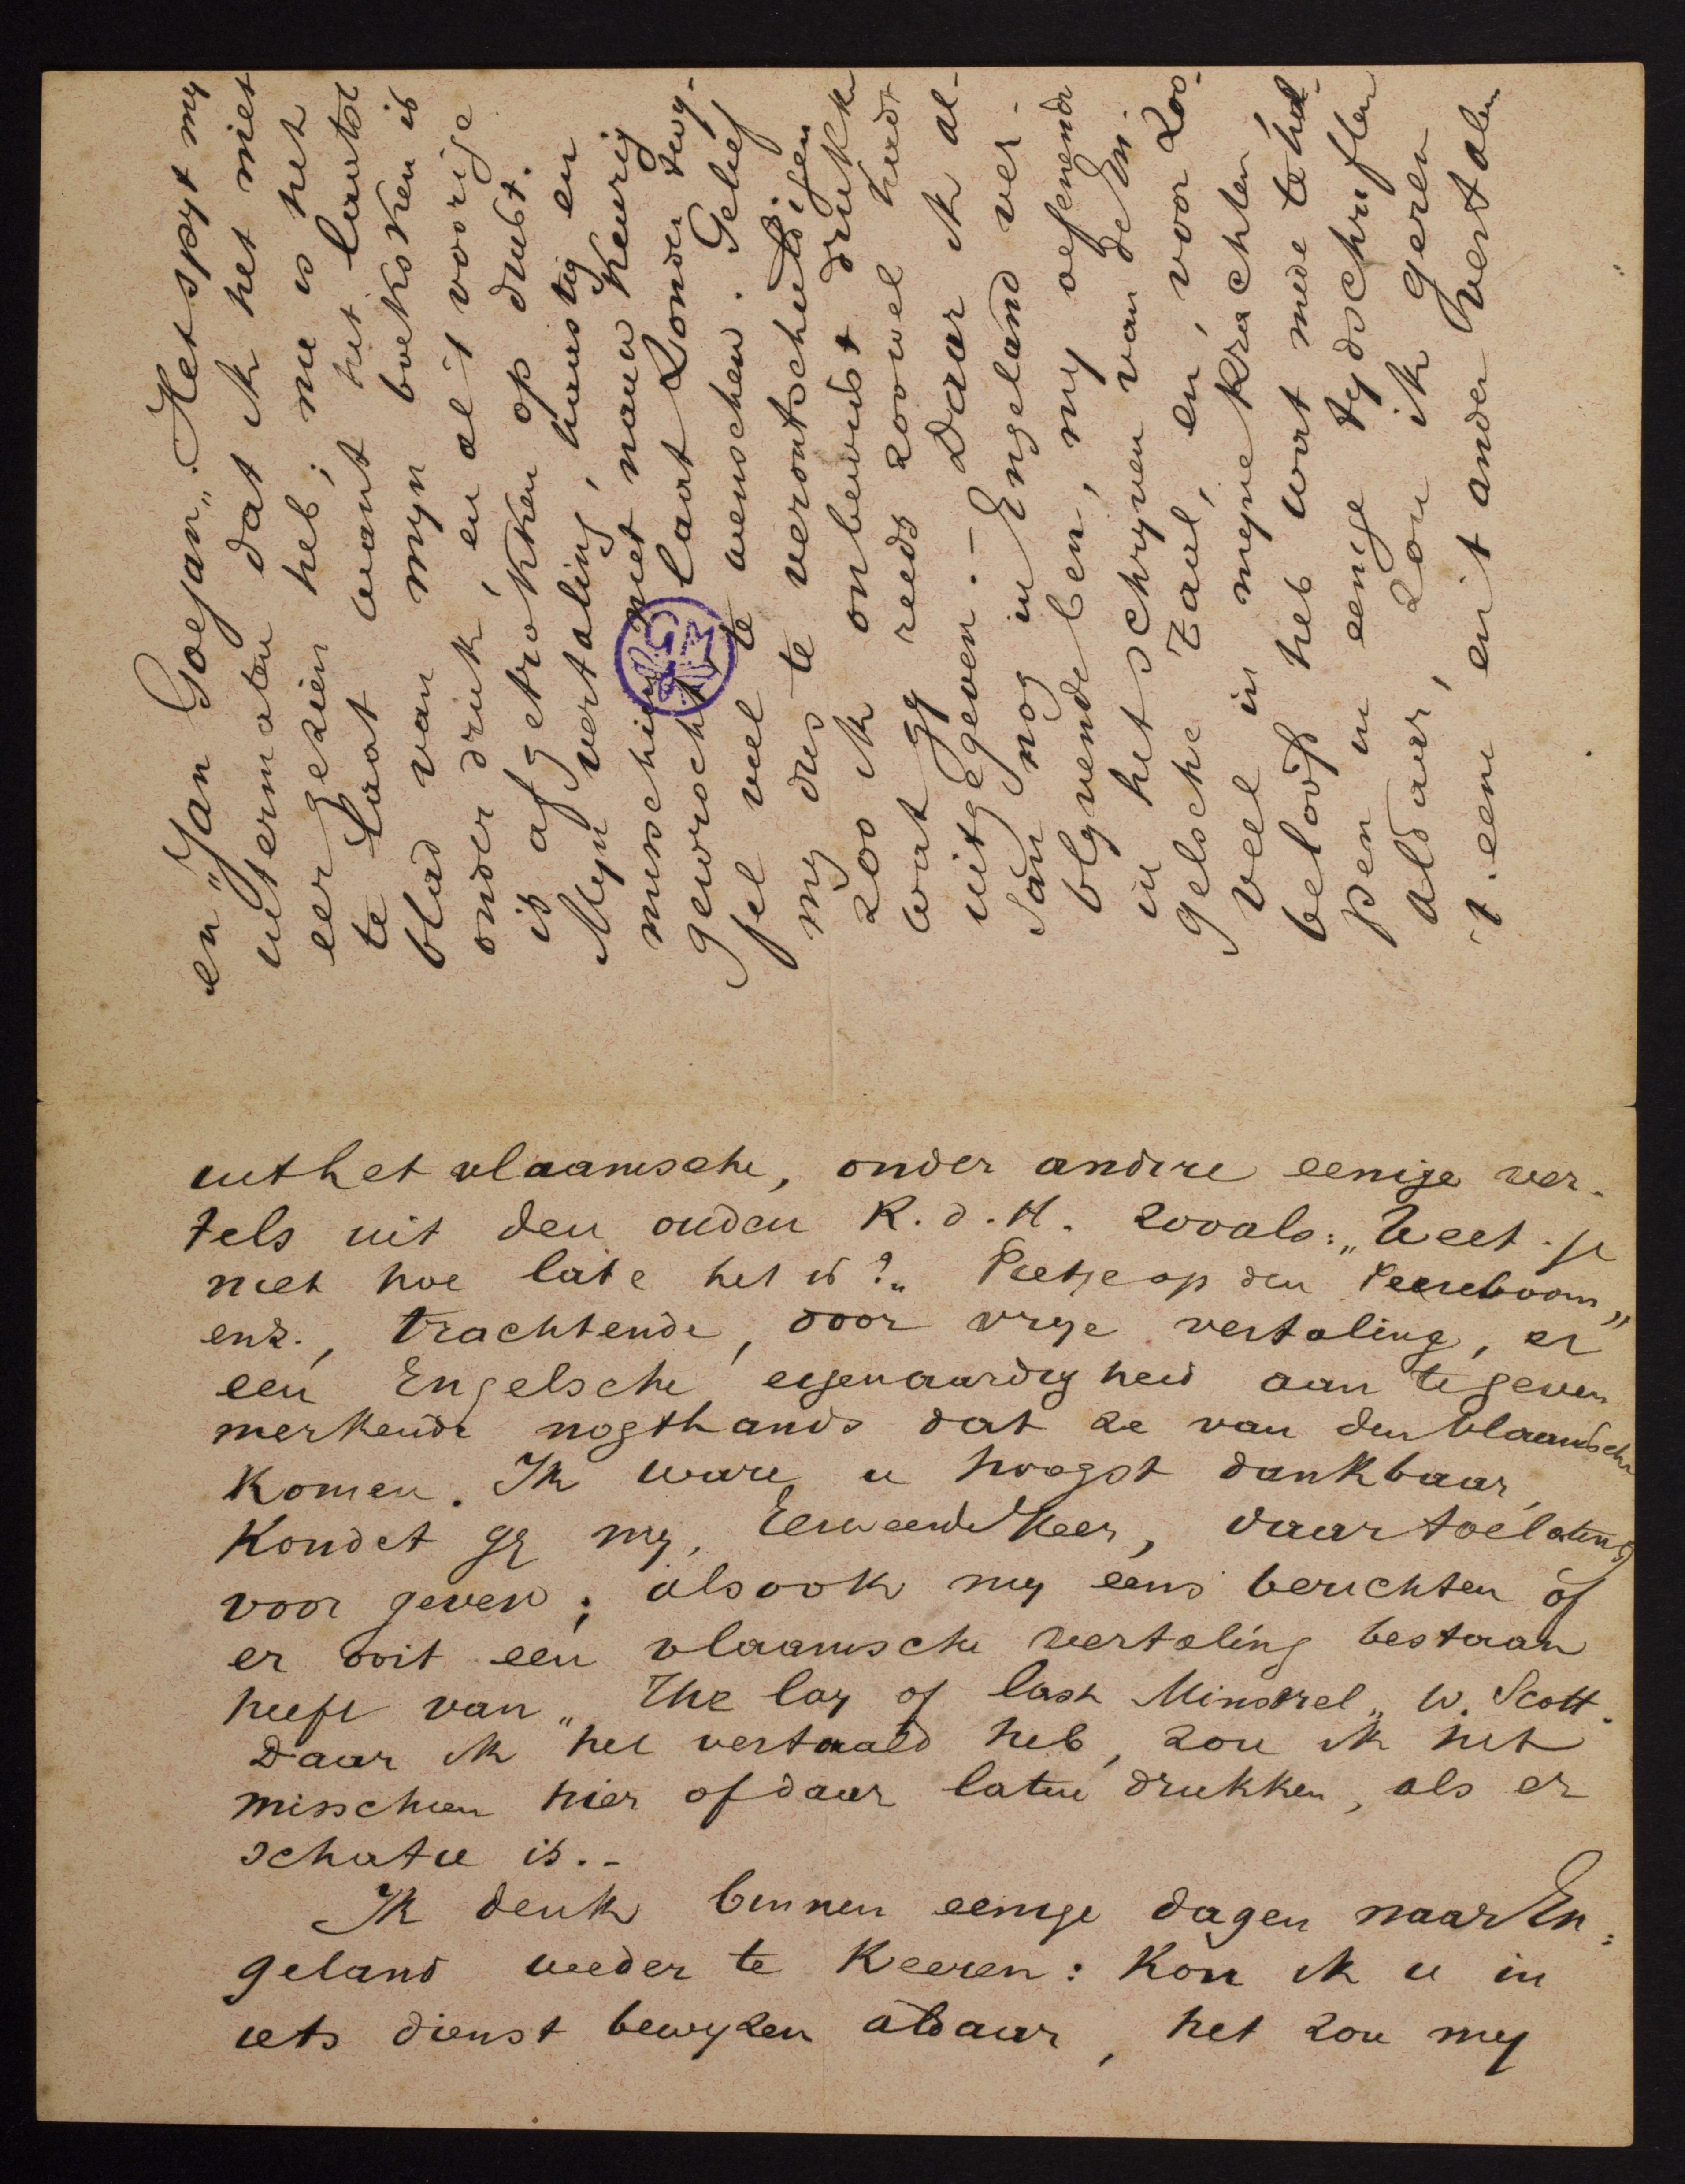 en "Jan Goejan„. Het spyt my
uitermaten dat ik het niet
eer gezien heb; nu is het
te laat want het laatste
blad van myn boeksken is
onder druk, en al 't vorige
is afgetrokken op dust.
Myn vertaling, haastig en
misschien niet nauw keurig
gewrocht, laat zonder twy-
fel veel te wenschen. Gelief
my dus te verontschuldigen
zoo ik onbewust drukke
wat gy reeds zoowel hadt
uitgegeven. – Daar ik al-
san nog in Engeland ver-
blyvende ben, my oefenende
in het schryven van de En-
gelsche Taal, en, voor zoo-
veel in myne krachten
beloofd heb wat mede te hel-
pen in eenige tydschriften
aldaar, zou ik geren
't eene en 't ander vertalen
uit het vlaamsche, onder andere eenige ver-
tels uit den ouden R. d. H. zooals: „Weet-je
niet hoe late het is?„ Pietje op den Peereboom„
enz., trachtende, door vrye vertaling, er
een Engelsche eigenaardigheid aan te geven
merkende nogthans dat ze van den Vlaamsche
komen. Ik ware u hoogst dankbaar,
kondet gy my, Eerweerde Heer, daar toelating
voor geven; alsook my eens berichten of
er ooit een vlaamsche vertaling bestaan
heeft van „The lay of last Minstrel„ W. Scott.
Daar ik het vertaald heb, zou ik het
misschien hier of daar laten drukken, als er
schatie is.-
Ik denk binnen eenige dagen naar En-
geland weder te keeren: kon ik u in
iets dienst bewyzen aldaar, het zou my